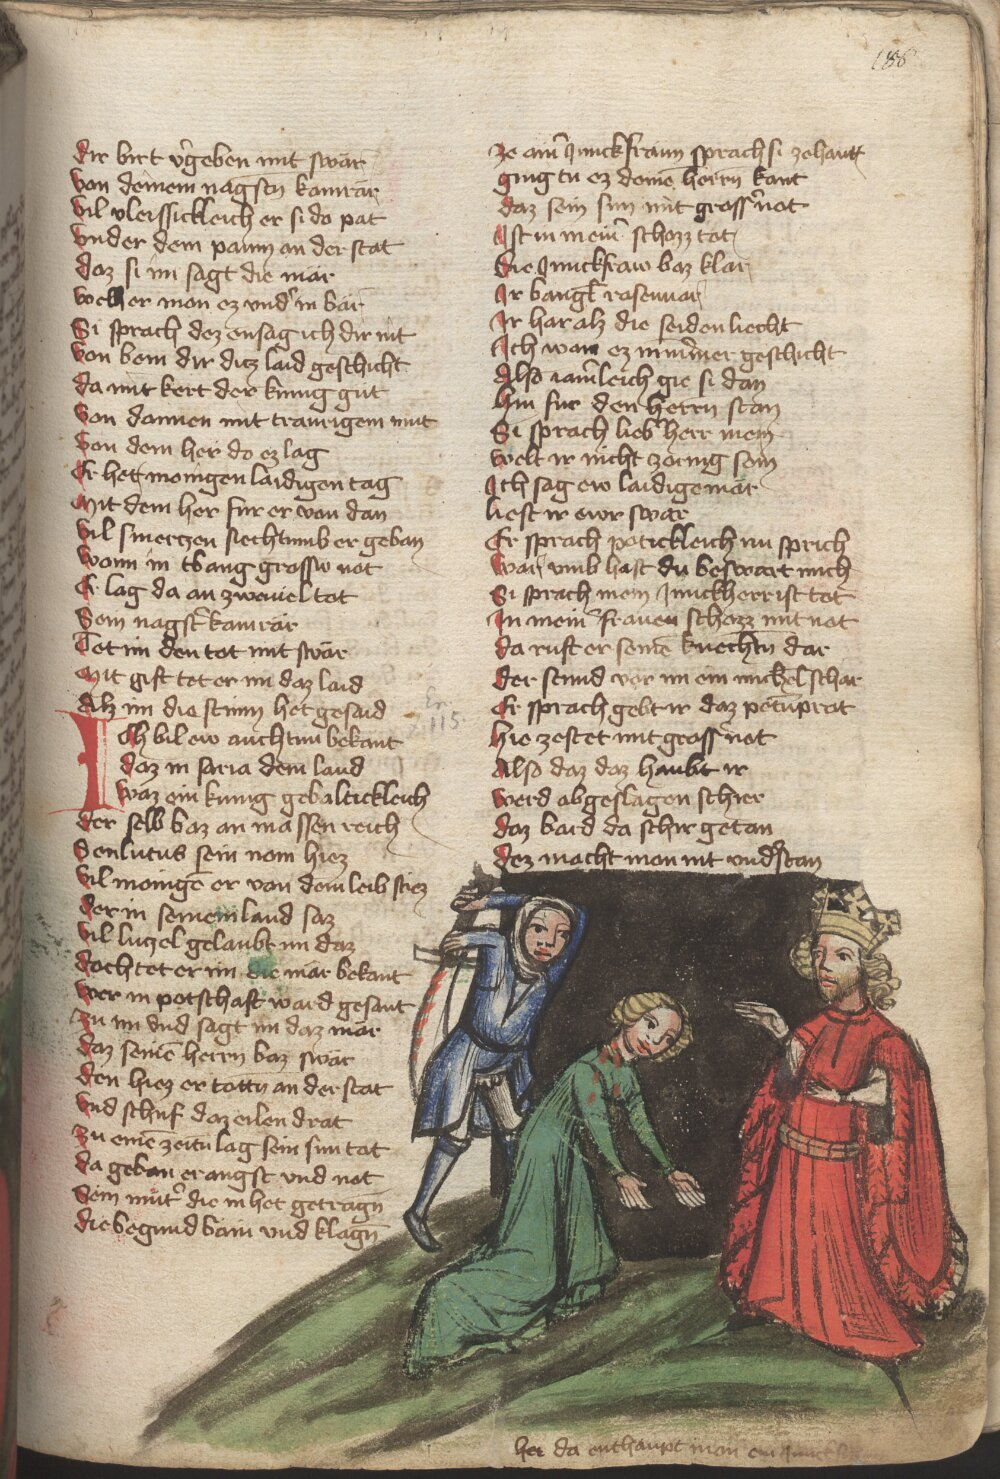 186
dir wirt vergeben mit swär
von deinem nägsten kamrär
Vil vleissickleich er si do pat
vnder dem paum an der stat
daz si im sagt die mär
welher man ez vnder in wär
Si sprach dez ensag ich dir nit
von wem dir ditz laid geschicht
da mit kert der kunig gut
Von dannen mit traurigem mut
Zon dem her do ez lag
Er het mängen laidigen tag
Mit dem her fur er von dan
Vil smerczen siechtumb er gewan
wann in twang grossw not
Er lag da an zweiuel tot
Sein nagster kamrär
Tet im den tot mit swär
Mit gift tet er im daz laid
Alz im die stimm het gesaid
Ich wil ew auch tun bekant
daz in siria dem land
waz ein kunig gewaltickleich
der selb waz an massen reich
Senlutus sein nam hiez
Vil mängen er von dem leib stiez
der in seinem land saz
Vil lugel gelaubt im daz
doch tet er im die mär bekant
wer in potschaft ward gesant
Zu im vnd sagt im daz mär
daz seinē herrn waz swär
den hiez er tottn an der stat
Vnd schuf daz eilen drat
Zu einē zeitn lag sein sun tot
da gewan er angst vnd not
Sein muter die in het getragn
die begund wain vnd klagn
ze ainer Junckfraun sprach si zehant
ging tu ez deinē herrn kant
daz sein sun mit grosser not
Ist in meiner schozz tot
die Junckfraw waz klar
Ir wangel rosenuar
Ir har alz die seiden liecht
Ich wän ez nimmer geschicht
Also iamerleich gie si dan
hin fur den herrn stan
Si sprach lieber herr mein
welt ir nicht zornig sein
Ich sag ew laidige mär
liest ir ewr swär
Er sprach poticklich nu sprich
War vmb hast du beswärt mich
Si sprach mein Junckherr ist tot
In meiner frauen schozz mit not
da ruft er seinē knechtn dar
der stund vor im ein michel schar
Er sprach gebt ir daz petenprat
hie zestet mit grosser not
Also daz daz haubt ir
werd abgeslagen schier
daz ward da schir getan
dez macht man nit vnderstan
her da enthaupt man ein Junckf